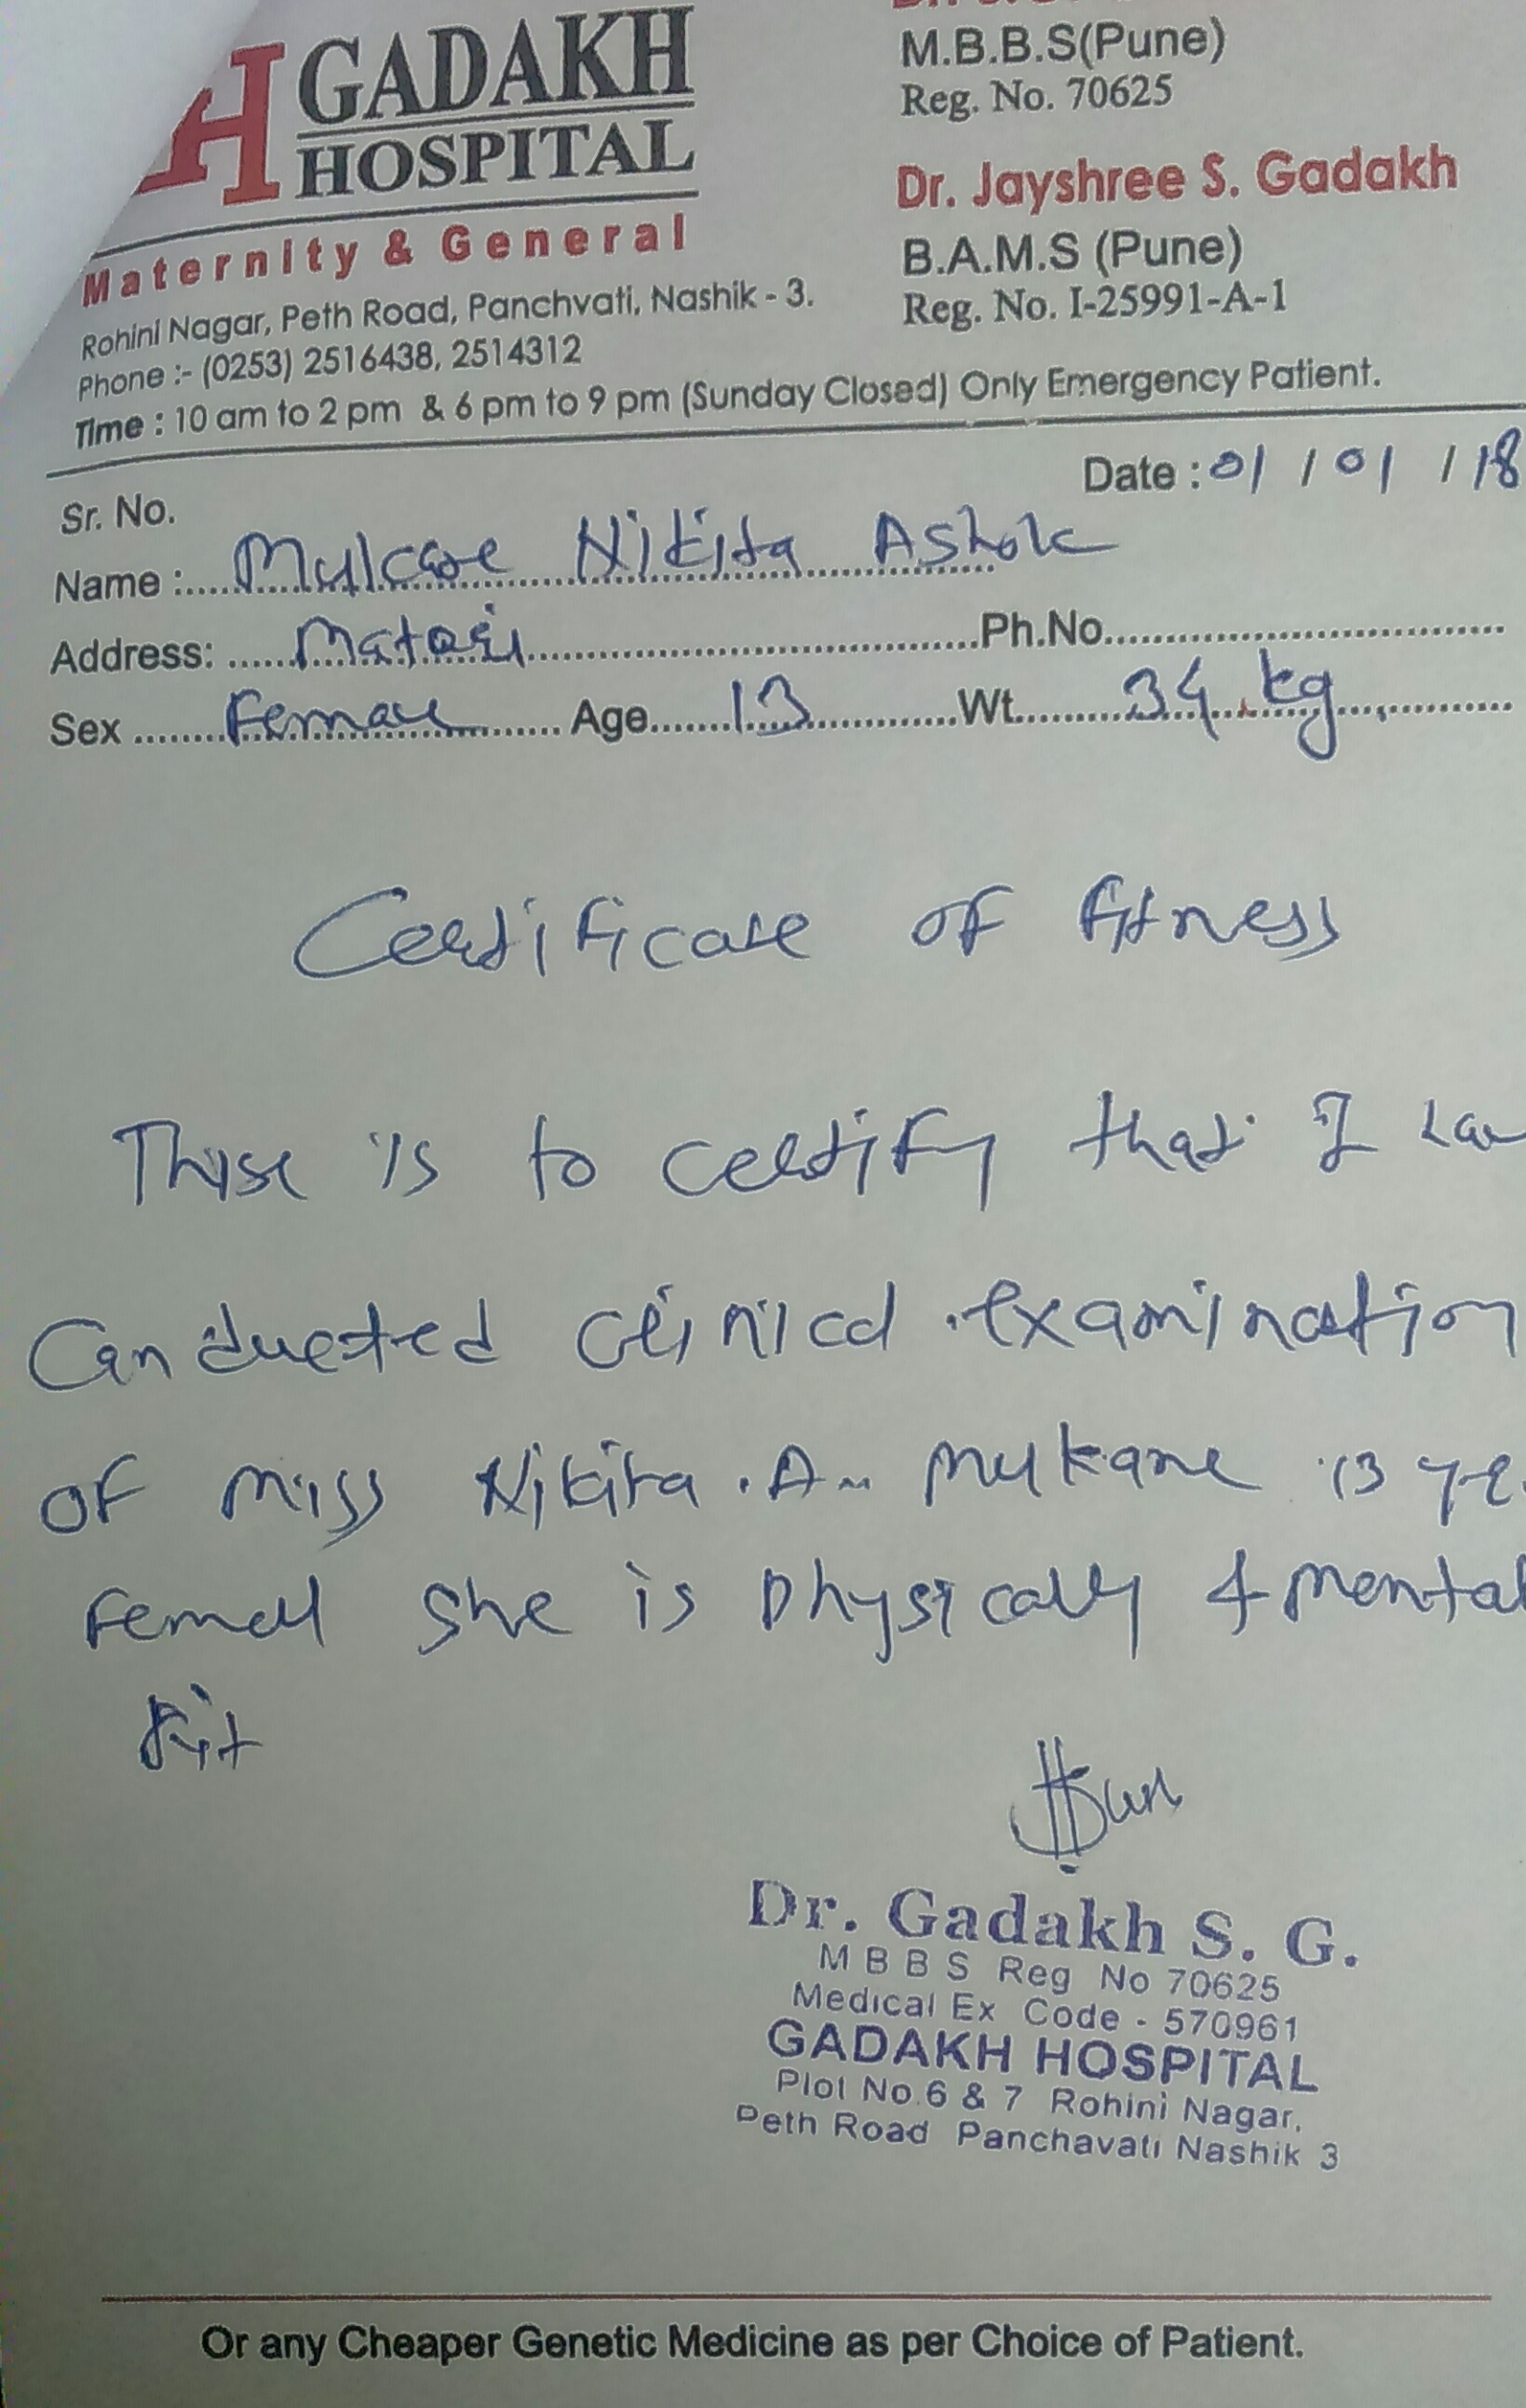 H GADAKH
HOSPITAL
Maternity & General
Rohini Nagar, Peth Road, Panchvati, Nashik - 3.
Phone :- (0253) 2516438, 2514312
Time : 10 am to 2 pm & 6 pm to 9 pm (Sunday Closed) Only Emergency Patient.
M.B.B.S(Pune)
Reg. No. 70625
Dr. Jayshree S. Gadakh
B.A.M.S (Pune)
Reg. No. I-25991-A-1
Date : 01 / 01 / 18
Sr. No.
Name : Mukane Nikita Ashok
Address: Ph.No.
Sex Female Age 13 Wt. 34 kg
Certificate of fitness
This is to certify that I
Conducted clinical examination
of miss Nikita . A. Mukane 13
Femall she is physically & mental
Fit
Dr. Gadakh S. G.
M B B S Reg No 70625
Medical Ex Code - 570961
GADAKH HOSPITAL
Plot No.6 & 7 Rohini Nagar,
Peth Road Panchavati Nashik 3
Or any Cheaper Genetic Medicine as per Choice of Patient.